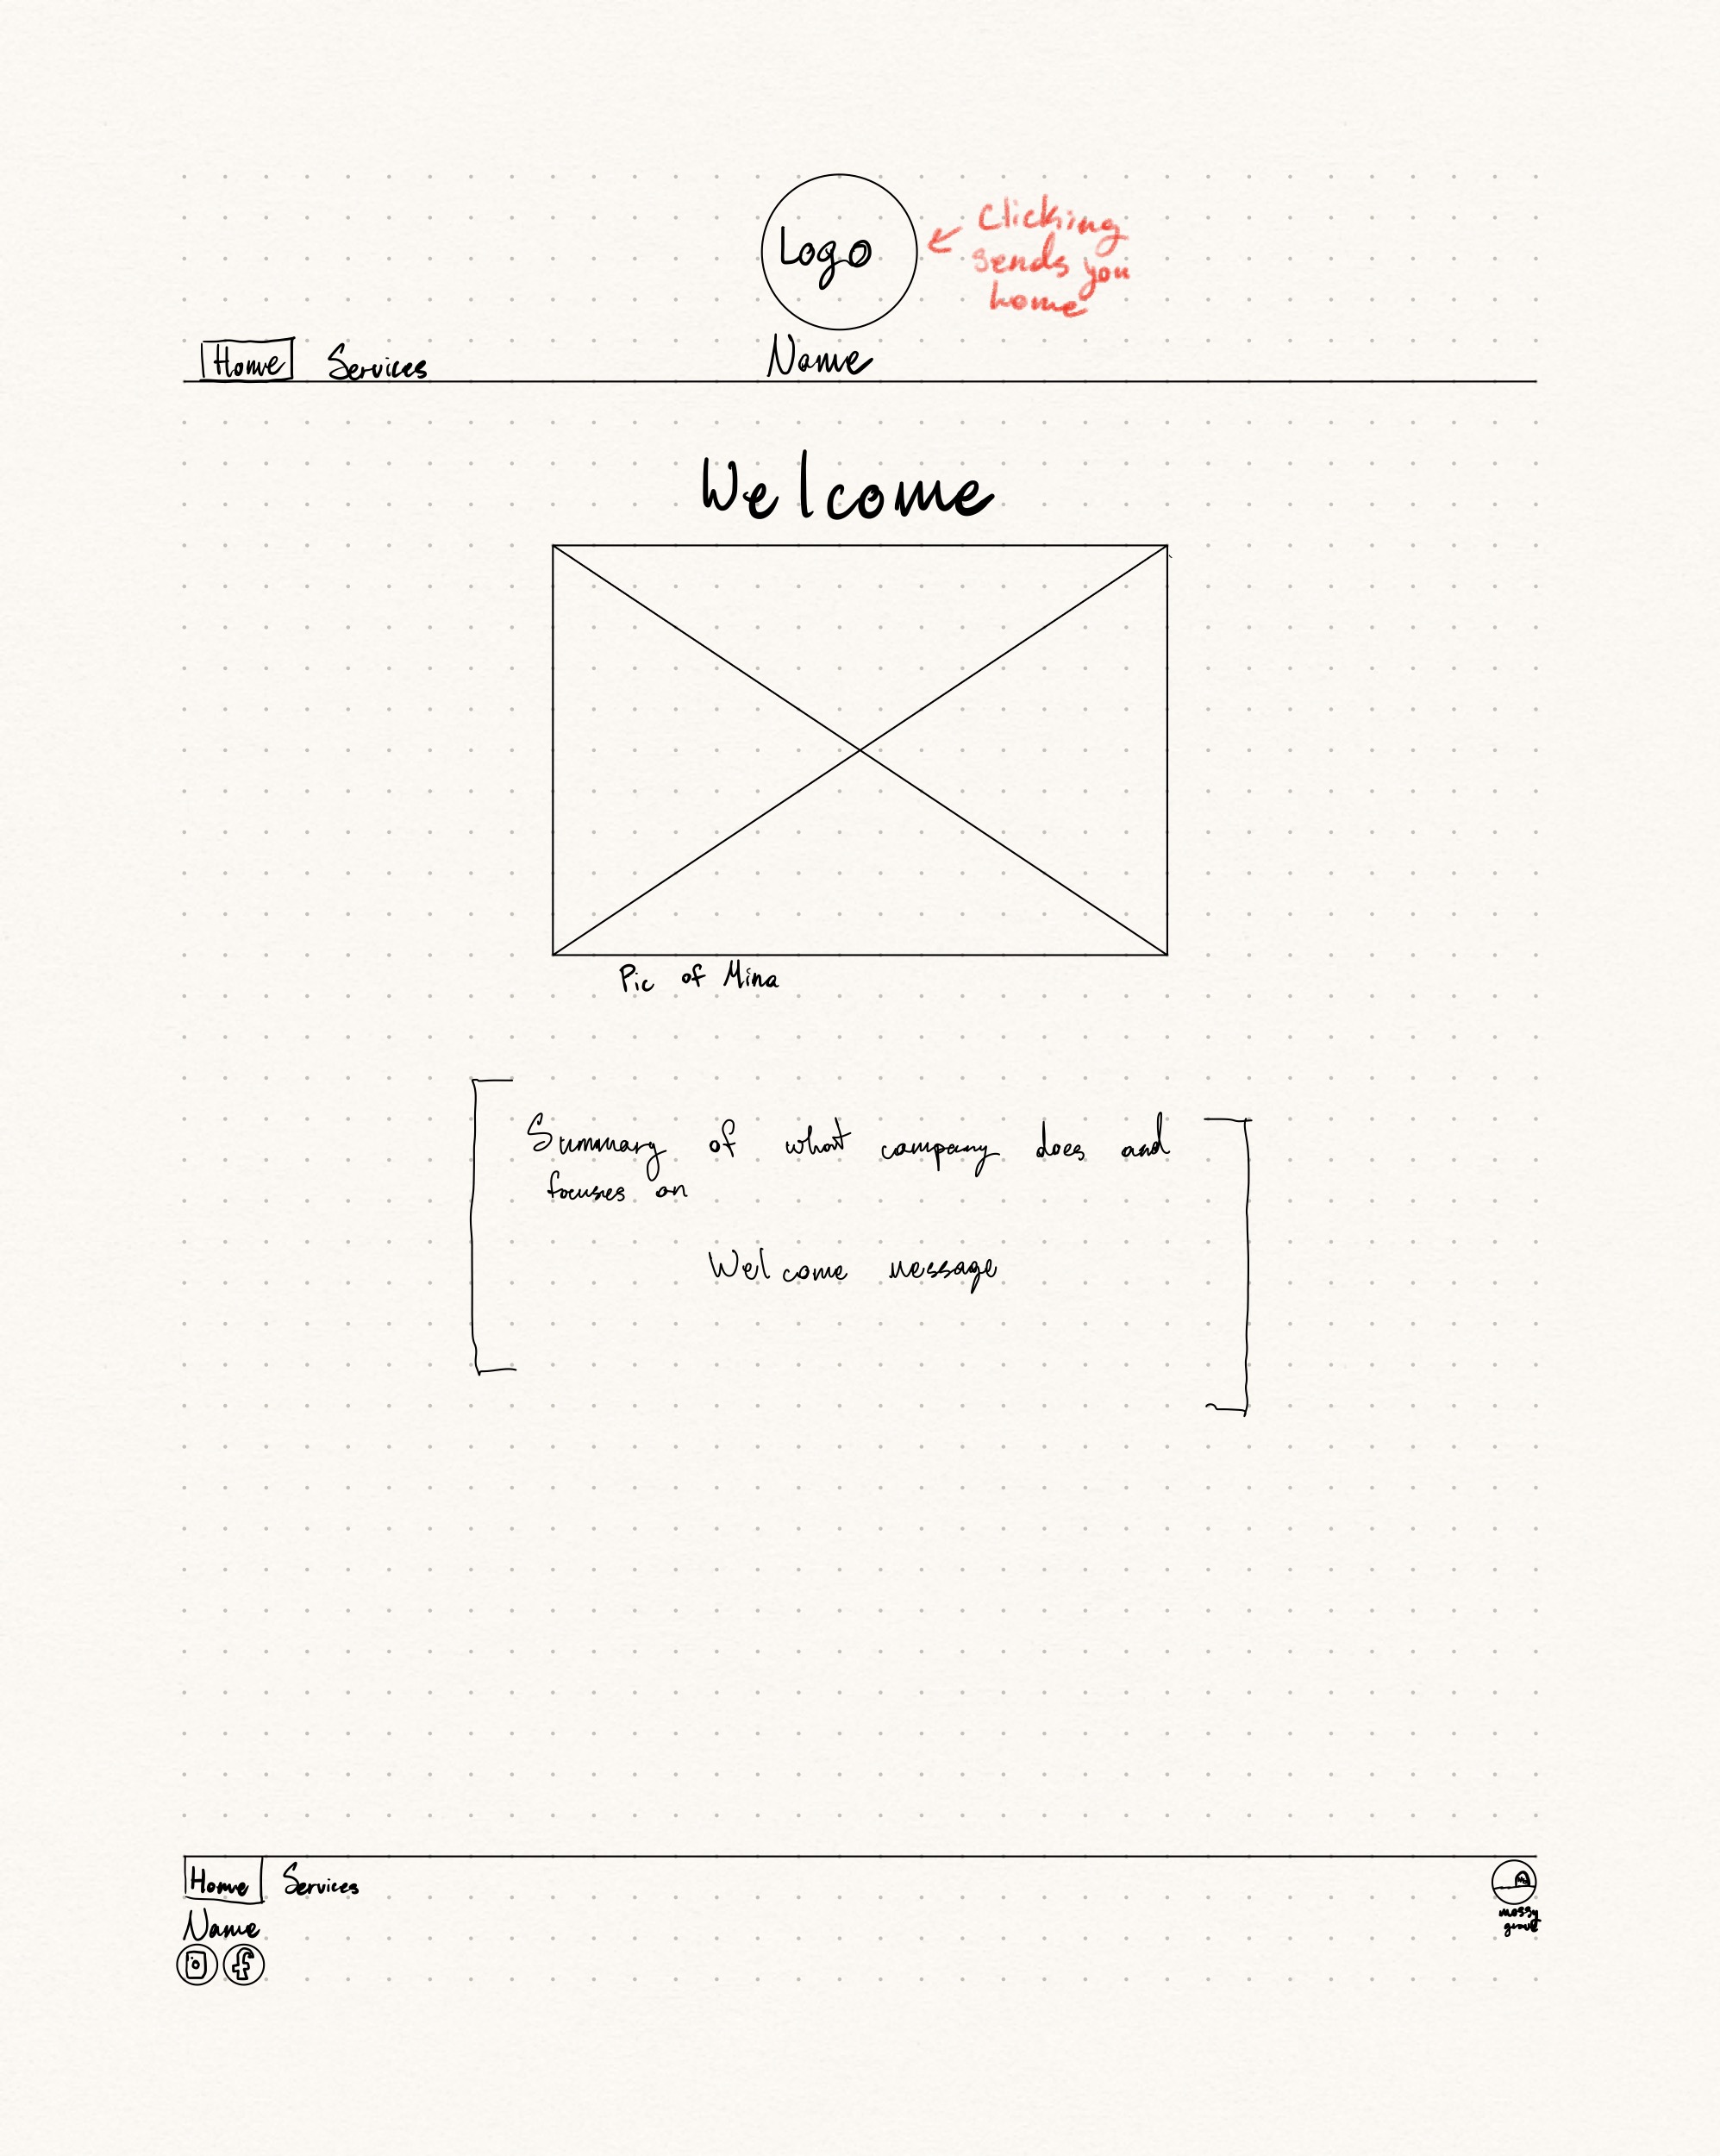 Logo
Clicking
sends you
home
Home Services
Name
Welcome
Pic of Mina
Summary of what company does and
focuses on
Welcome message
Home Services
Name
mossy